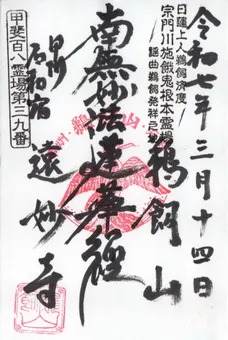 令和七年三月十四日
日蓮上人鵜飼済度
宗門川施餓鬼根本霊場
謡曲鵜飼発祥之
鵜飼山
南無妙法蓮華経
遠妙寺
石和宿
甲斐百八霊場第三九番